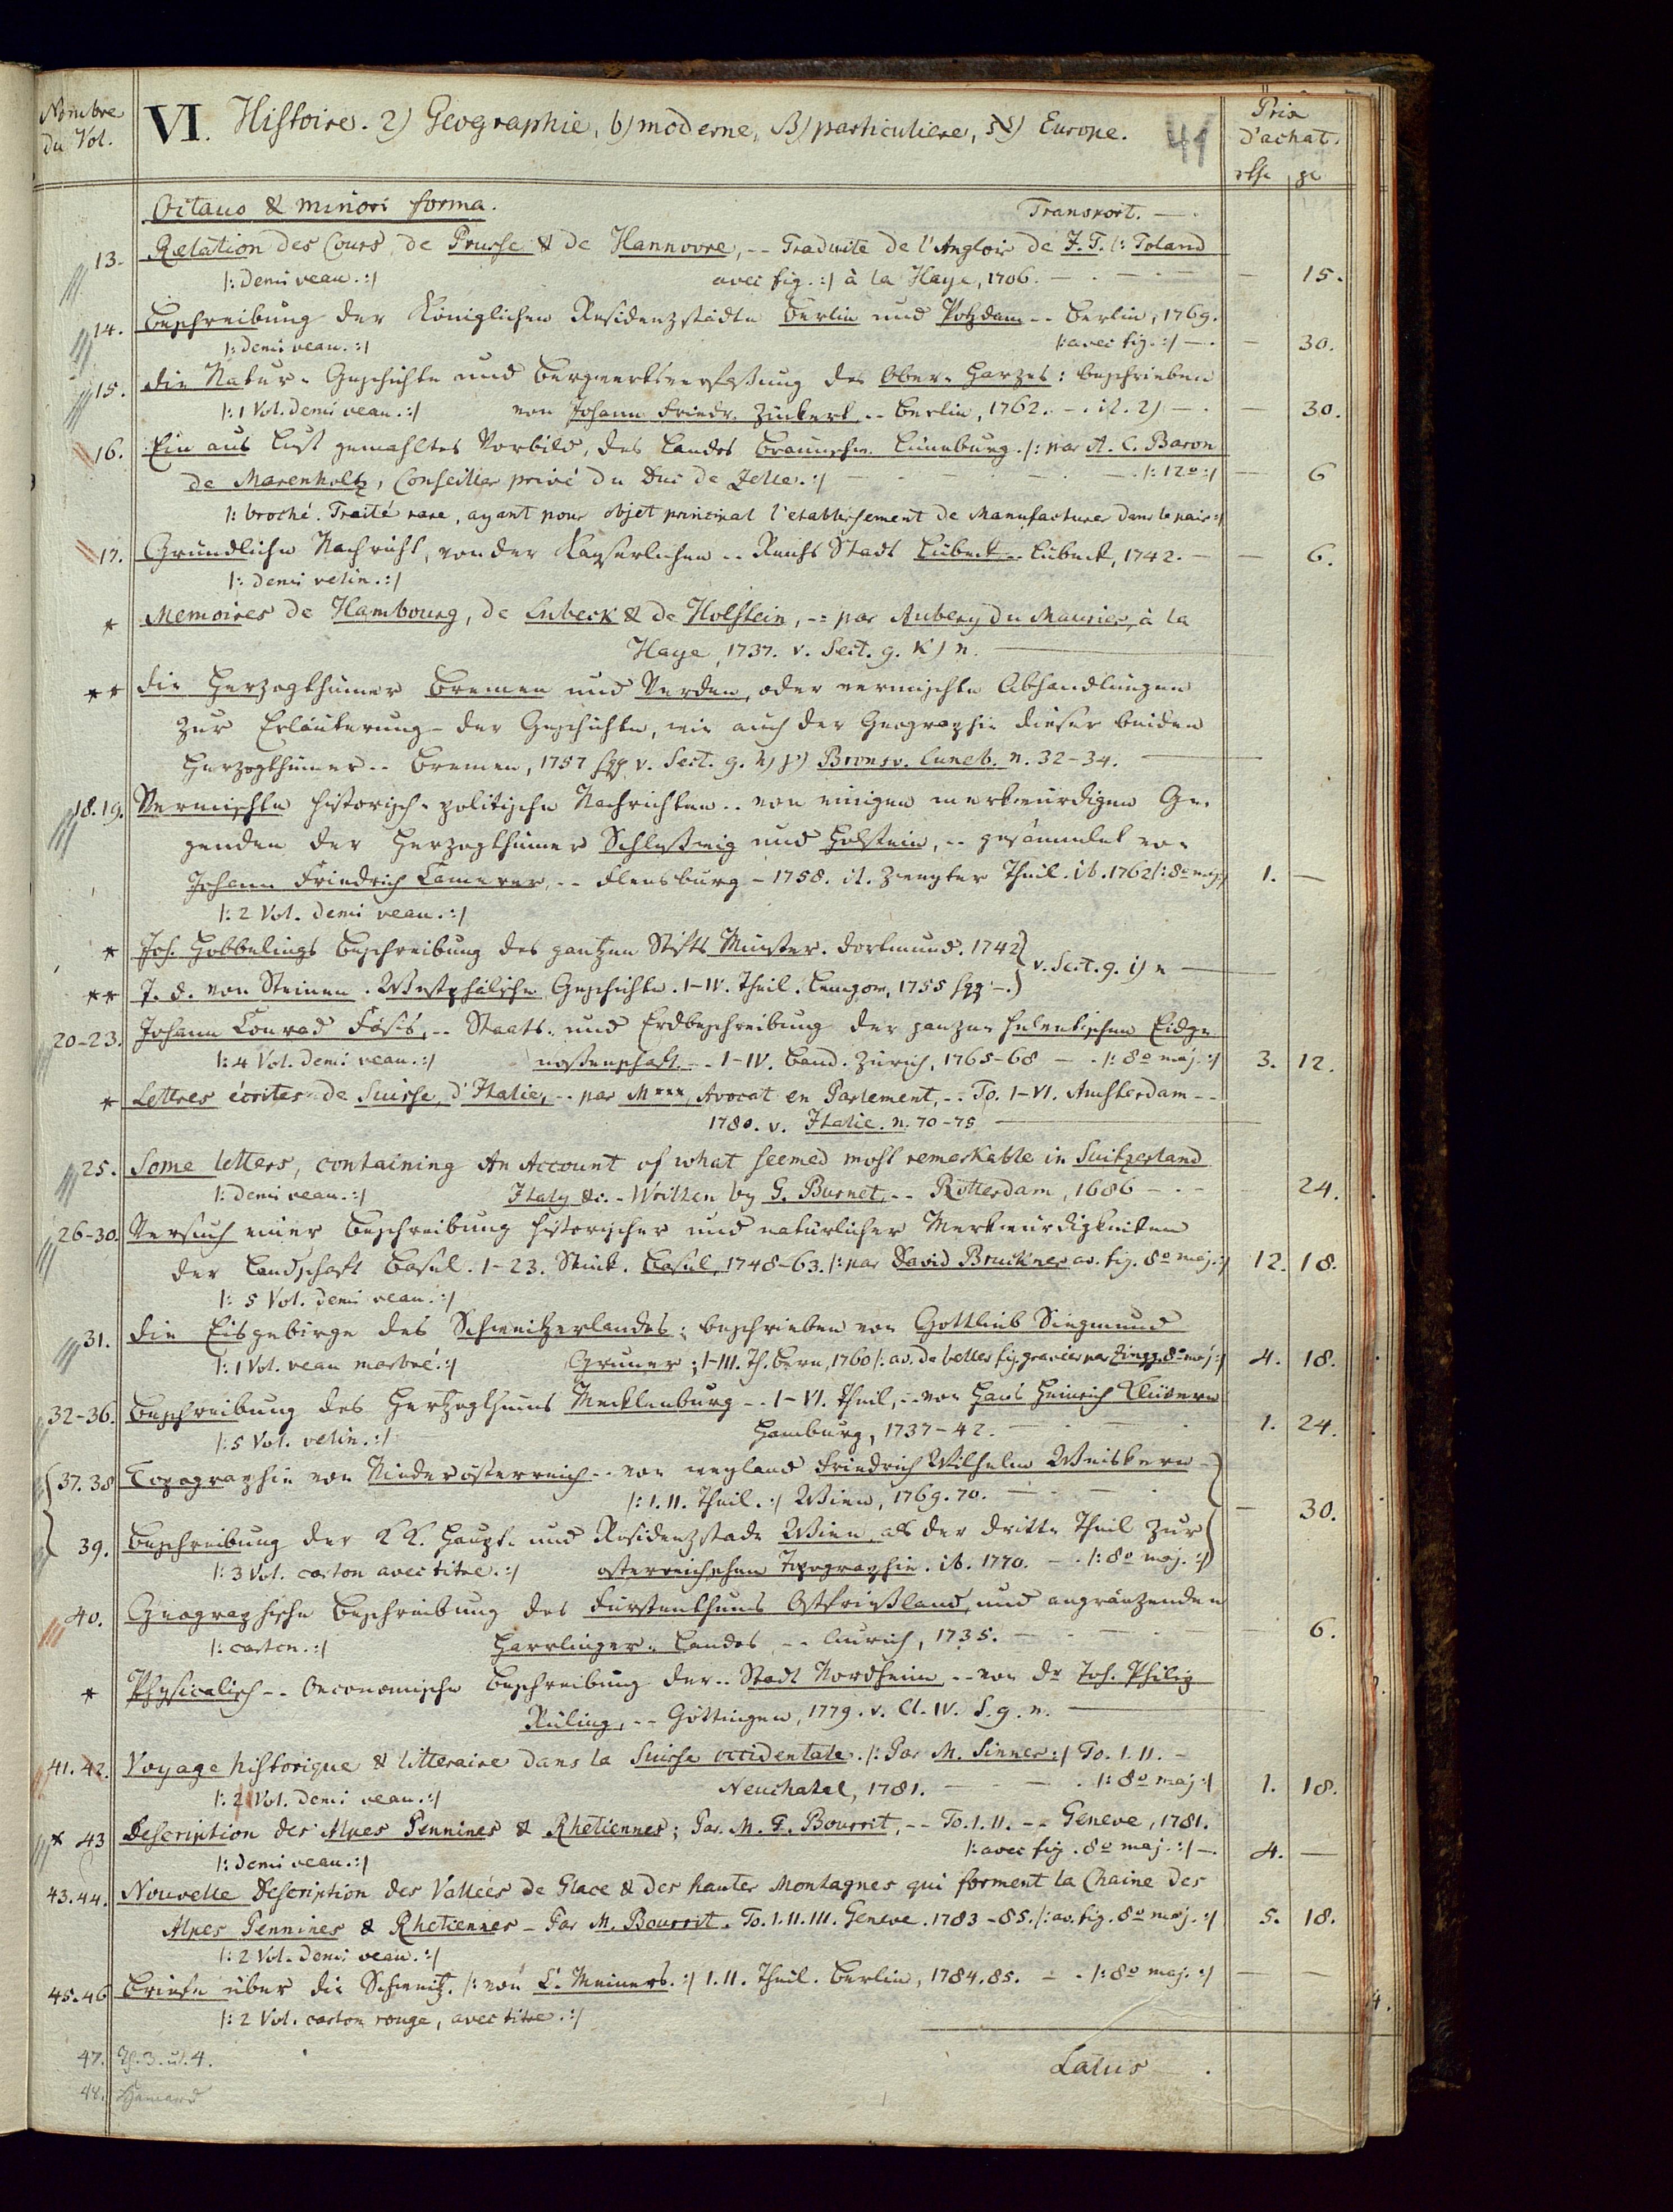 Nombre du Vol.
VI. Histoire. 2) Geographie, b) moderne, B) particuliere, א) Europe.
41
Prix d'achat.
Octavo & minori forma. Transport. — .
13. Relation des Cours de Prusse & de Hannovre, -- Traduite de l'Anglois de J. T. /: Toland
/: Demi veau. :/ avec fig. :/ à la Haye, 1706. — . — . — — 15.
14. Beschreibung der Königlichen Residenzstädte Berlin und Potzdam -- Berlin, 1769.
/: Demi veau. :/ /: avec fig. :/ — . — 30.
15. Die Natur- Geschichte und Bergwerksverfaßung des Ober- Harzes: beschrieben
/: 1 Vol. Demi veau. :/ von Johann Friedr. Zückert -- Berlin, 1762. - . it. 2) — . — 30.
16. Ein aus Lust gemahltes Vorbild, des Landes Braunschw. Lüneburg. /: par A. C. Baron
de Marenholtz, Conseiller privé du Duc de Zelle. :/ — . — . — . /: 12o :/ — 6
/: broché. Traité rare, ayant pour objet principal l'etablissement de Manufactures dans le païs :/
17. Gründliche Nachricht, von der Kayserlichen -- Reichs Stadt Lübeck -- Lübeck, 1742. — — 6.
/: Demi velin. :/
* Memoires de Hambourg, de Lubeck & de Holstein, -- par Aubery du Maurier, à la
Haye, 1737. v. Sect. g. k) n. —
** Die Herzogthümer Bremen und Verden, oder vermischte Abhandlungen
zur Erläuterung - der Geschichte, wie auch der Geographie dieser beiden
Herzogthümer -- Bremen, 1757 sqq. v. Sect. g. h) γ) Bronsv. Luneb. n. 32-34. —
18. 19. Vermischte historisch- politische Nachrichten -- von einigen merkwürdigen Ge-
genden der Herzogthümer Schleßwig und Holstein, -- gesammlet von
Johann Friedrich Camerer, -- Flensburg - 1758. it. Zweyter Theil. ib. 1762 /: 8o maj. :/ 1. —
/: 2 Vol. Demi veau. :/
* Joh. Hobbelings Beschreibung des gantzen Stifts Münster. Dortmund. 1742 } v. Sect. g. i) n —
** J. D. von Steinen. Westphälische Geschichte. I-IV. Theil. Lemgow, 1755 sqq. - . }
20-23. Johann Conrad Fäsis, -- Staats- und Erdbeschreibung der ganzen helvetischen Eidge-
/: 4 Vol. Demi veau. :/ noßenschaft -- I-IV. Band. Zürich, 1765-68 — . /: 8o maj. :/ 3. 12.
* Lettres écrites de Suisse, d'Italie, -- par M***, Avocat en Parlement, -- To. I-VI. Amsterdam --
1780. v. Italie. n. 70-75 —
25. Some letters, containing An Account of what seemed most remarkable in Suitzerland
/: Demi veau. :/ Italy &c. - Written by G. Burnet, -- Rotterdam, 1686 — . — 24.
26-30. Versuch einer Beschreibung historischer und natürlicher Merkwürdigkeiten
der Landschaft Basel. 1-23. Stück. Basel, 1748-63. /: par David Bruckner av. fig. 8o maj. :/ 12. 18.
/: 5 Vol. Demi veau. :/
31. Die Eisgebirge des Schweitzerlandes: beschrieben von Gottlieb Siegmund
/: 1 Vol. veau marbré. :/ Gruner; I-III. Th. Bern, 1760 /: av. de belles fig. gravées par Zingg. 8o maj :/ 4. 18.
32-36. Beschreibung des Hertzogthums Mecklenburg -- I-VI. Theil, -- von Hans Heinrich Klüvern
/: 5 Vol. velin. :/ Hamburg, 1737-42. — . — . 1. 24.
37. 38 Topographie von Niederösterreich -- von weyland Friedrich Wilhelm Weiskern -
/: I. II. Theil. :/ Wien, 1769. 70. — . — . — 30.
39. Beschreibung der K K. Haupt- und Residenzstadt Wien, als der dritte Theil zur
/: 3 Vol. carton avec titre. :/ österreichschen Topographie. ib. 1770. — . /: 8o maj. :/
40. Geographische Beschreibung des Fürstenthums Ostfrießland, und angränzenden
/: carton. :/ Harrlinger- Landes -- Aurich, 1735. — . — . — — 6.
* Physicalisch -- Oeconomische Beschreibung der -- Stadt Nordheim -- von Dr Joh. Philip
Rüling, -- Göttingen, 1779. v. Cl. IV. S. g. n. —
41. 42. Voyage historique & litteraire dans la Suisse occidentale. /: Par M. Sinner :/ To. I. II. -
/: 2 Vol. Demi veau. :/ Neuchatel, 1781. — . — . /: 8o maj :/ 1. 18.
* 43 Description des Alpes Pennines & Rhetiennes; Par M. T. Bourrit, -- To. I. II. -- Geneve, 1781.
/: Demi veau. :/ /: avec fig. 8o maj. :/ — . 4. —
43. 44. Nouvelle Description des Vallées de Glace & des hautes Montagnes qui forment la Chaine des
Alpes Pennines & Rhetiennes - Par M. Bourrit. To. I. II. III. Geneve. 1783-85. /: av. fig. 8o maj. :/ 5. 18.
/: 2 Vol. Demi veau. :/
45. 46 Briefe über die Schweitz. /: von C. Meiners. :/ I. II. Theil. Berlin, 1784. 85. — . /: 8o maj. :/ — —
/: 2 Vol. carton rouge, avec titre. :/
47. Th. 3. u. 4. Latus — .
48.